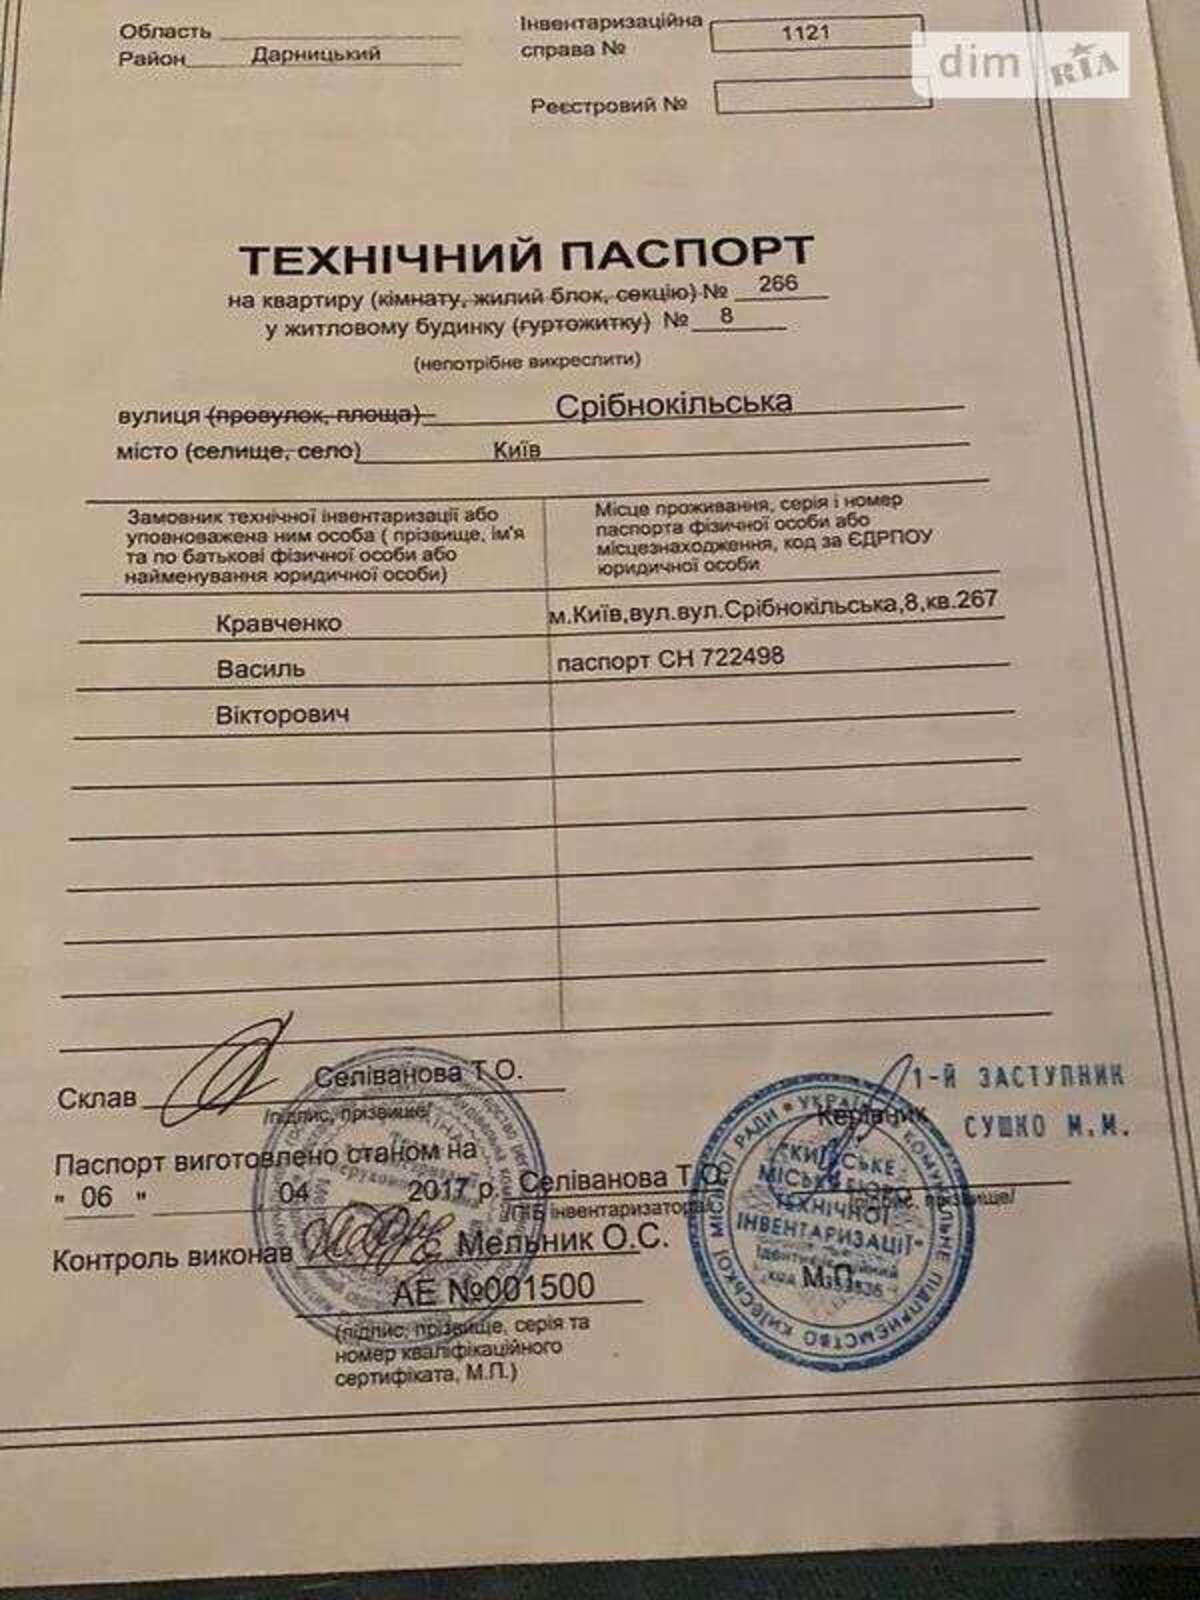 Область
Район Дарницький
Інвентаризаційна
справа № 1121
dim RIA
Реєстровий №
ТЕХНІЧНИЙ ПАСПОРТ
на квартиру (кімнату, жилий блок, секцію) № 266
у житловому будинку (гуртожитку) № 8
(непотрібне викреслити)
вулиця (провулок, площа) Срібнокільська
місто (селище, село) Київ
Замовник технічної інвентаризації або
уповноважена ним особа ( прізвище, ім'я
та по батькові фізичної особи або
найменування юридичної особи)
Місце проживання, серія і номер
паспорта фізичної особи або
місцезнаходження, код за ЄДРПОУ
юридичної особи
Кравченко м.Київ,вул.вул.Срібнокільська,8,кв.267
Василь паспорт СН 722498
Вікторович
Склав Селіванова Т.О.
/підпис, прізвище/
1-Й ЗАСТУПНИК
Керівник СУШКО М.М.
/підпис, прізвище/
Паспорт виготовлено станом на
" 06 " 04 2017 р. Селіванова Т.О.
/ПІБ інвентаризатора/
Контроль виконав Мельник О.С.
АЕ №001500
(підпис, прізвище, серія та
номер кваліфікаційного
сертифіката, М.П.)
М.П.
УКРАЇНА КОМУНАЛЬНЕ ПІДПРИЄМСТВО КИЇВСЬКОЇ МІСЬКОЇ РАДИ
"КИЇВСЬКЕ
МІСЬКЕ БЮРО
ТЕХНІЧНОЇ
ІНВЕНТАРИЗАЦІЇ"
Ідентифікаційний
код